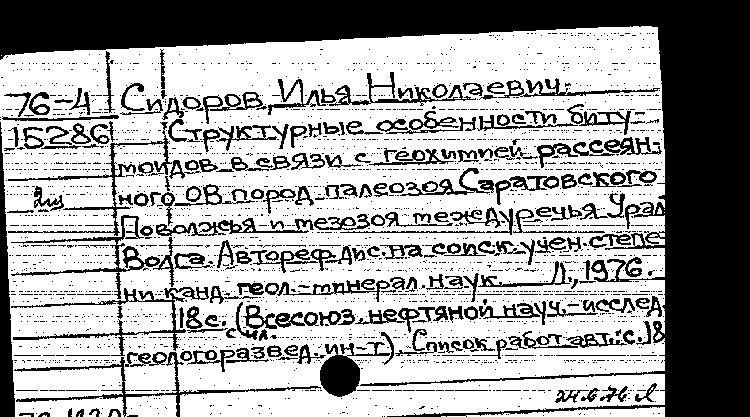 76-4 Сидоров, Илья Николаевич.
15286 Структурные особенности биту-
моидов в связи с геохимией рассеян-
ного ОВ пород палеозоя Саратовского
Поволжья и мезозоя междуречья Урал
Волга. Автореф.дис.на соиск.учен.степе-
ни канд. геол.-минерал.наук. Л., 1976.
18с. (Всесоюз.нефтяной науч.-исслед.
с ил.
геологоразвед.ин-т). Список работ авт.:с.18
24.6.76